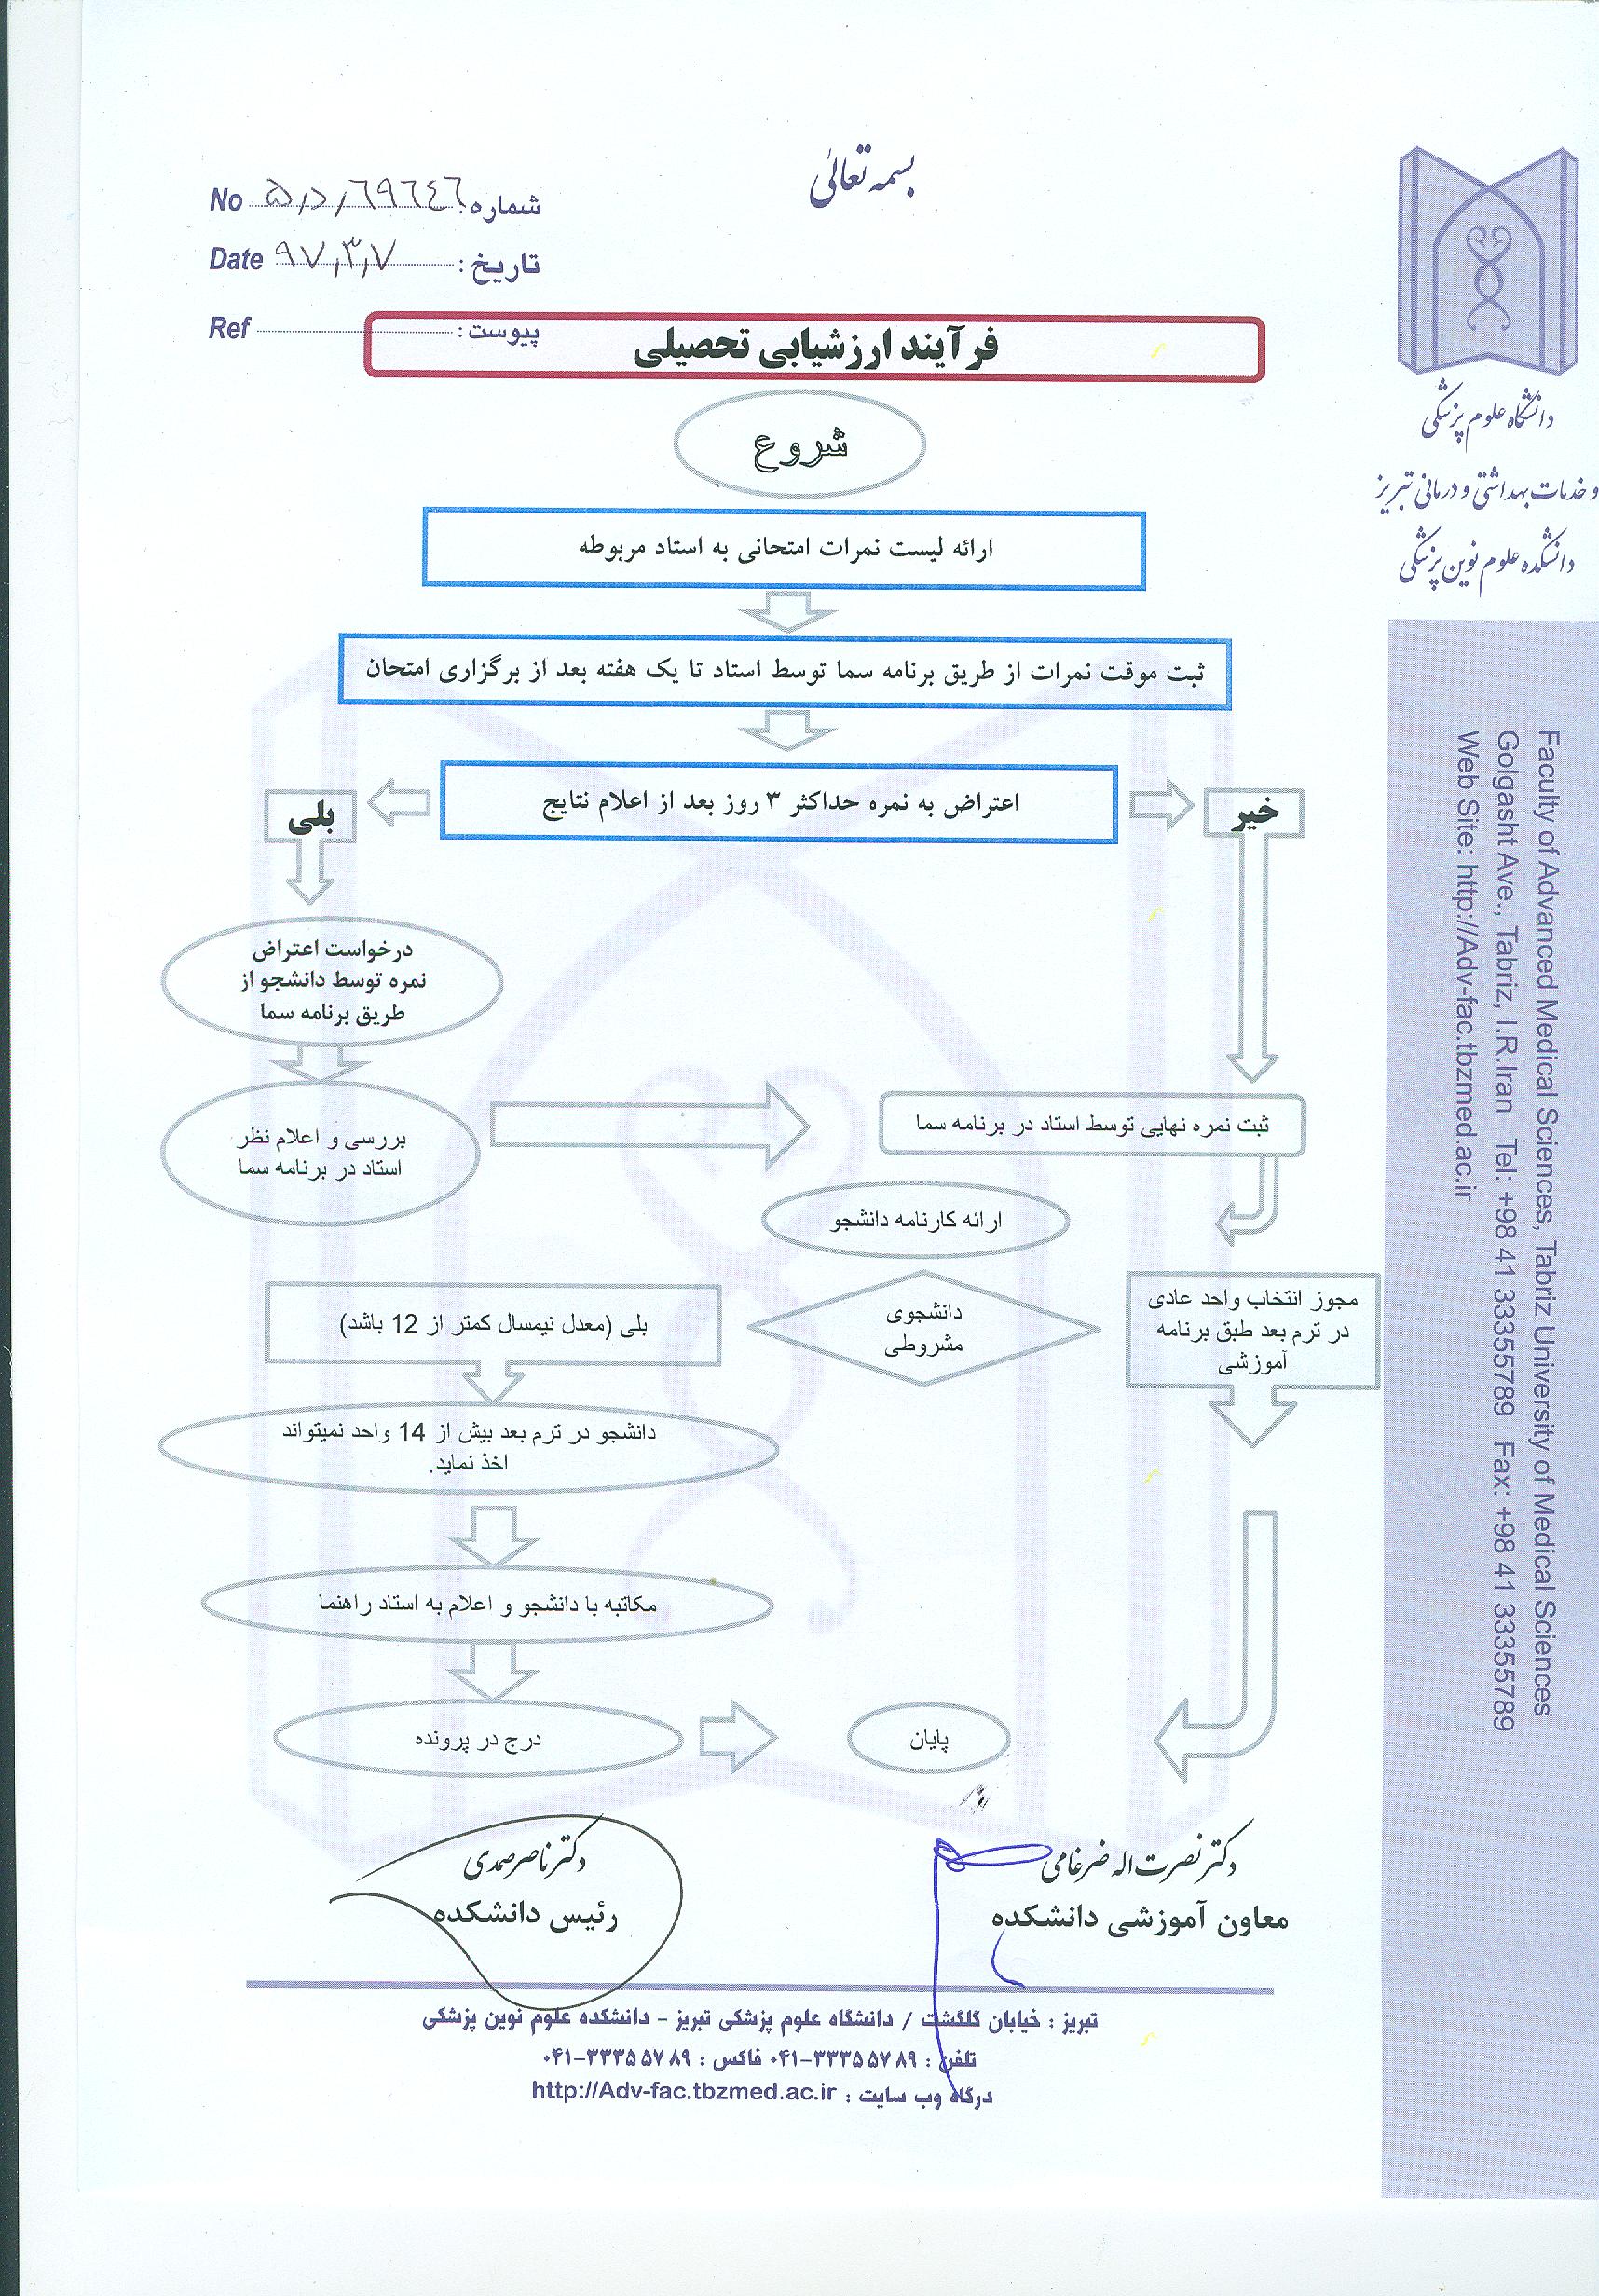 بسمه تعالی
شماره: ۵/د/۶۹۶۴۶ No
تاریخ: ۹۷/۳/۷ Date
پیوست: Ref
دانشگاه علوم پزشکی
و خدمات بهداشتی و درمانی تبریز
دانشکده علوم نوین پزشکی
فرآیند ارزشیابی تحصیلی
شروع
ارائه لیست نمرات امتحانی به استاد مربوطه
ثبت موقت نمرات از طریق برنامه سما توسط استاد تا یک هفته بعد از برگزاری امتحان
اعتراض به نمره حداکثر ۳ روز بعد از اعلام نتایج
خیر
بلی
درخواست اعتراض
نمره توسط دانشجو از
طریق برنامه سما
بررسی و اعلام نظر
استاد در برنامه سما
ثبت نمره نهایی توسط استاد در برنامه سما
ارائه کارنامه دانشجو
دانشجوی
مشروطی
مجوز انتخاب واحد عادی
در ترم بعد طبق برنامه
آموزشی
بلی (معدل نیمسال کمتر از 12 باشد)
دانشجو در ترم بعد بیش از 14 واحد نمیتواند
اخذ نماید.
مکاتبه با دانشجو و اعلام به استاد راهنما
درج در پرونده
پایان
دکتر نصرت اله ضرغامی
معاون آموزشی دانشکده
دکتر ناصر صمدی
رئیس دانشکده
تبریز : خیابان گلگشت / دانشگاه علوم پزشکی تبریز - دانشکده علوم نوین پزشکی
تلفن : ۳۳۳۵۵۷۸۹-۰۴۱ فاکس : ۳۳۳۵۵۷۸۹-۰۴۱
درگاه وب سایت : http://Adv-fac.tbzmed.ac.ir
Faculty of Advanced Medical Sciences, Tabriz University of Medical Sciences
Golgasht Ave., Tabriz, I.R.Iran Tel: +98 41 33355789 Fax: +98 41 33355789
Web Site: http://Adv-fac.tbzmed.ac.ir